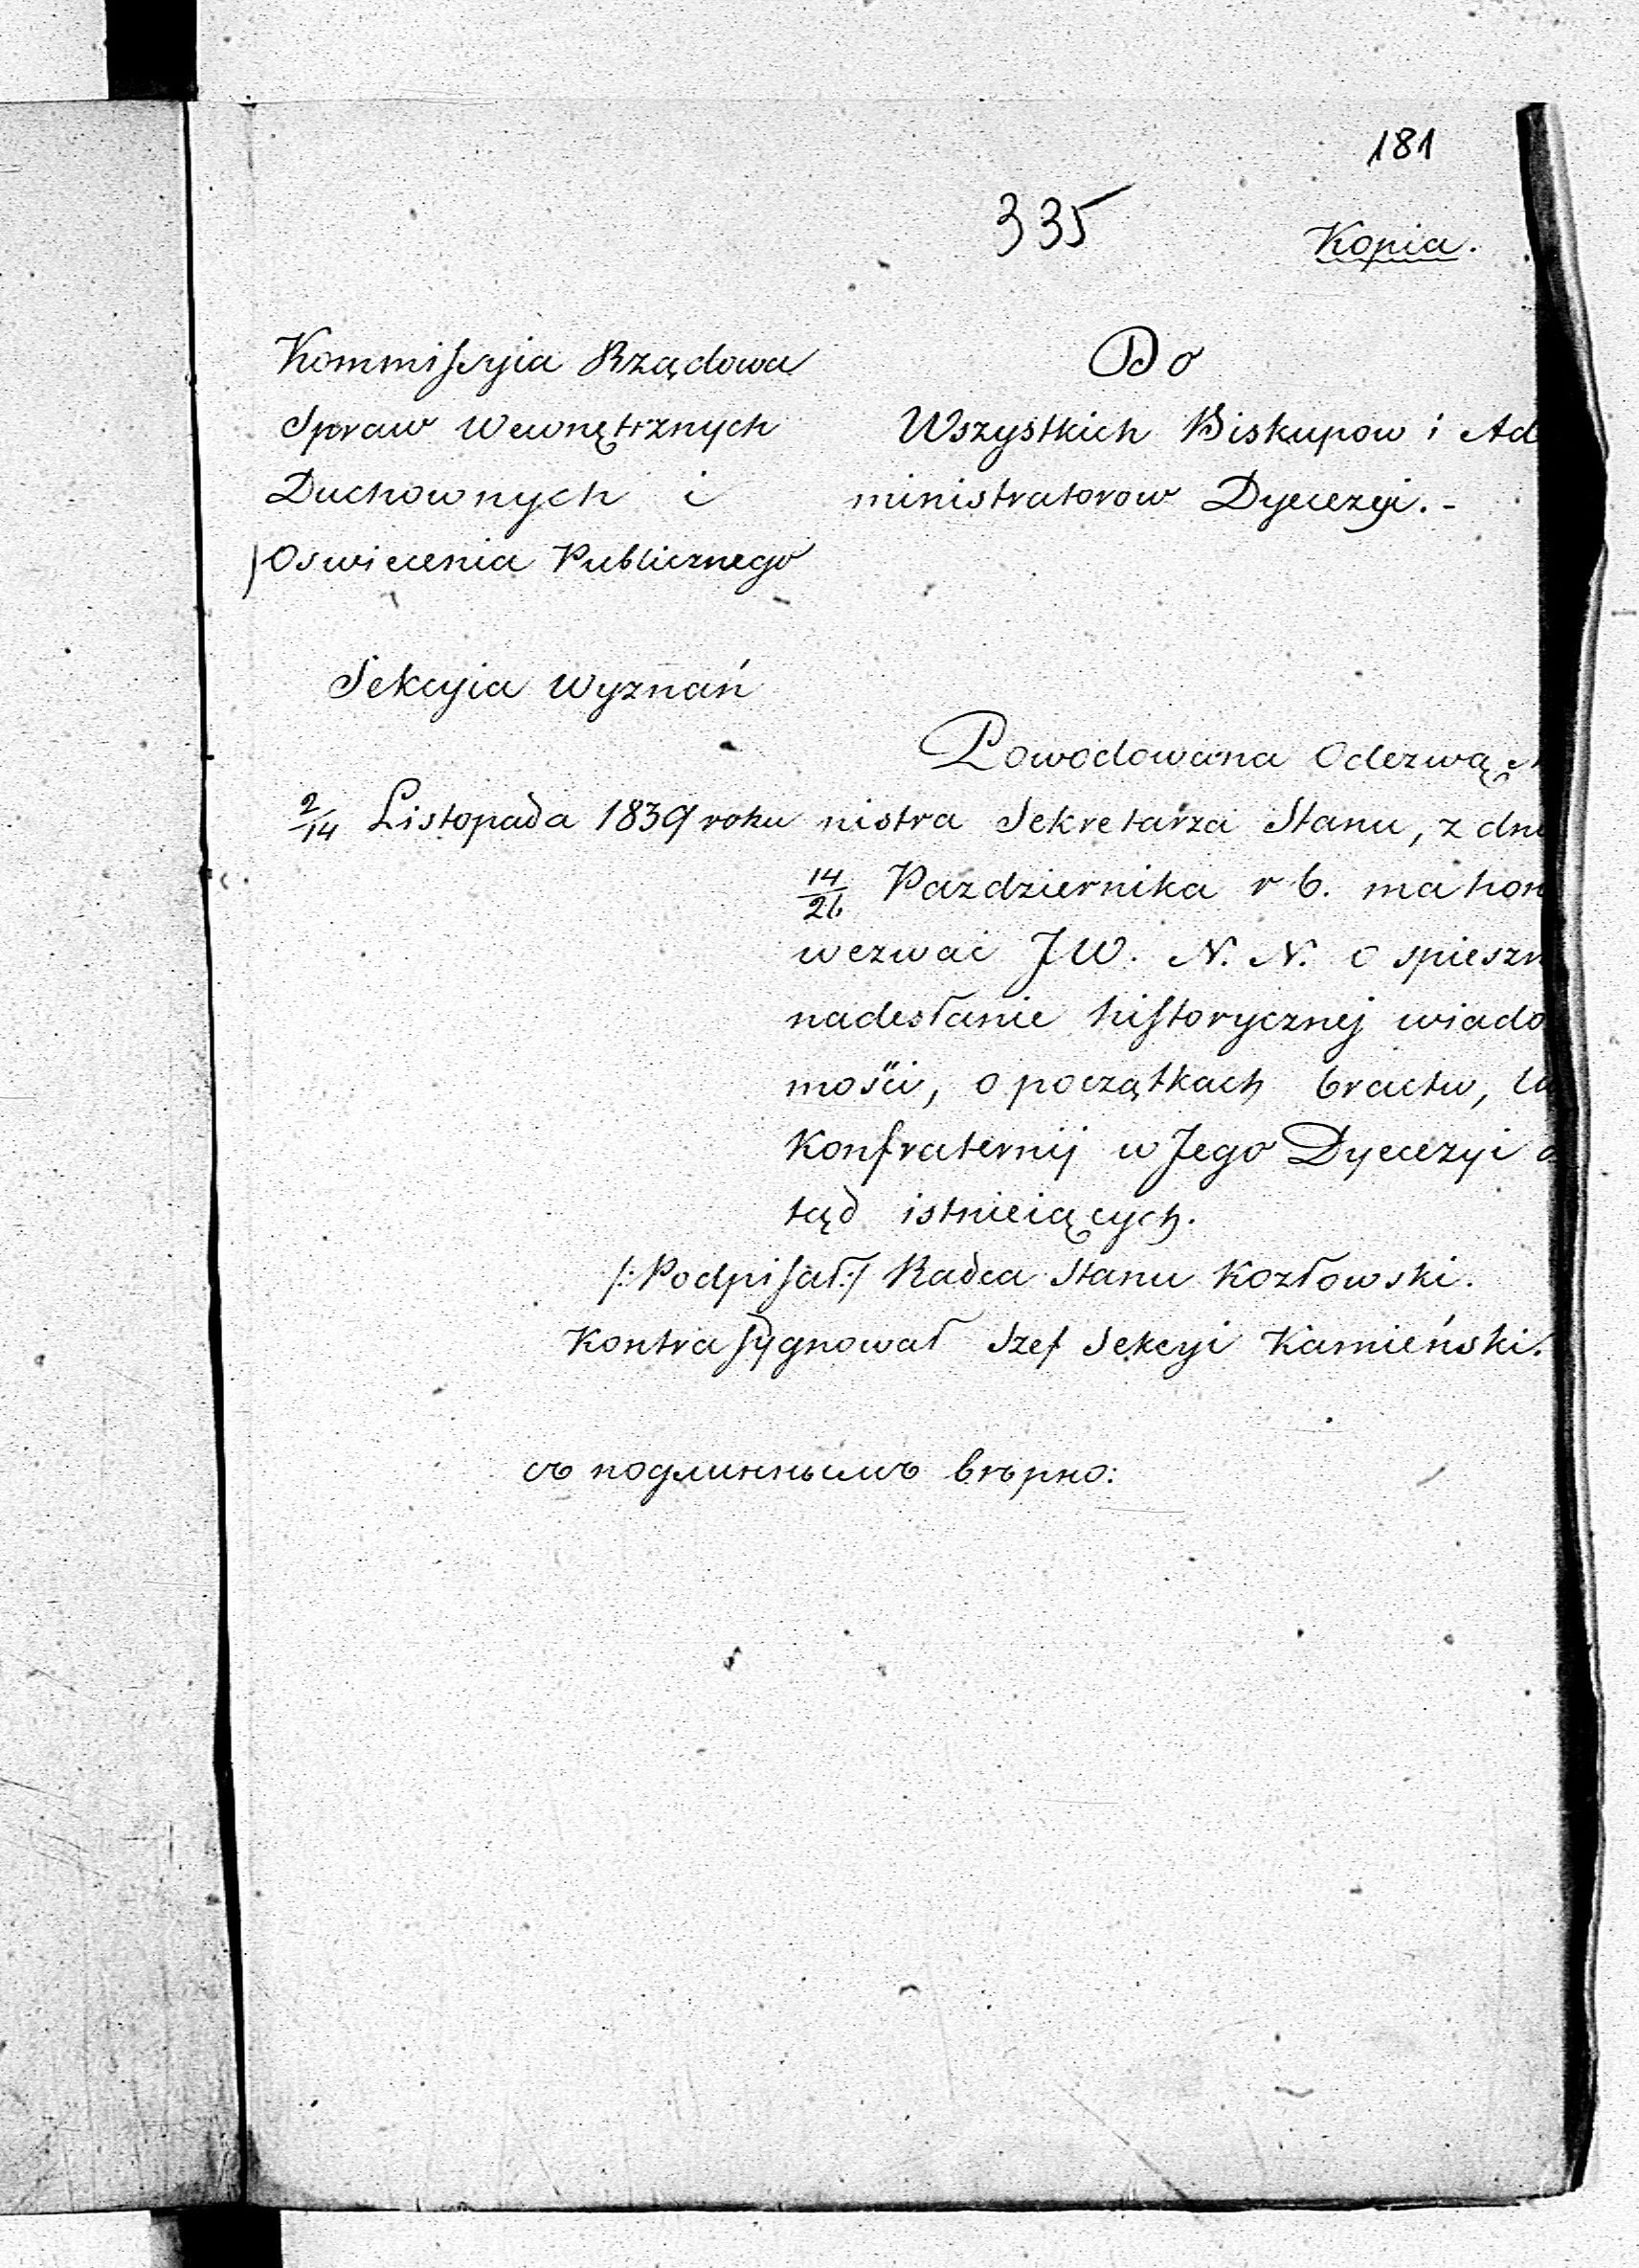 181
335
Kopia.
Kommissyia Rządowa
Spraw Wewnętrznych
Duchownych i
Oswiecenia Publicznego
Sekcyia Wyznań
2/14 Listopada 1839 roku
Do
Wszystkich Biskupow i Ad
ministratorow Dyecezyi.-
Powodowana Odezwą
nistra Sekretarza Stanu, z dni
14/26 Pazdziernika r b. ma hon
wezwać JW. N. N. o spieszn
nadesłanie historycznej wiado
mości, o początkach bractw, lu
Konfraternij w Jego Dyecezyi
tąd istnieiących.
/:Podpisał:/ Radca Stanu Kozłowski.
Kontrasygnował Szef Sekcyi Kamieński.
съ подлиннымъ вѣрно: